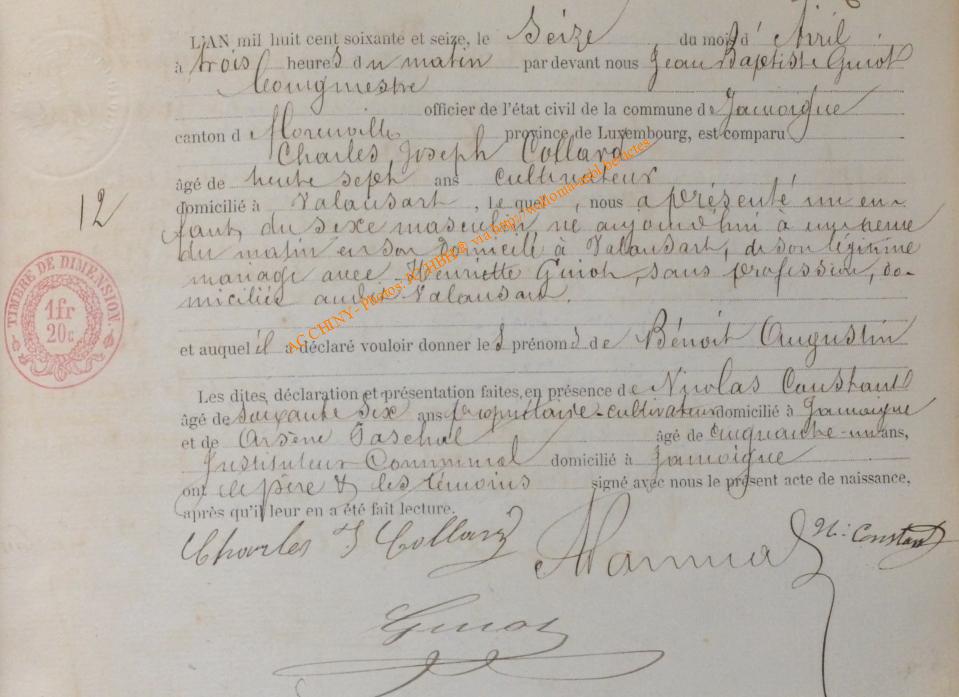 L'AN mil huit cent soixante et seize, le Seize du mois d' Avril
à trois heures du matin par devant nous Jean Baptiste Guiot
Bourgmestre
officier de l'état civil de la commune de Jamoigne
canton d Florenville province de Luxembourg, est comparu
Charles Joseph Collard
âgé de trente sept ans cultivateur
domicilié à Valansart, le quel, nous a présenté un en-
fant du sexe masculin, né aujourd'hui à une heure
du matin en son domicile à Valansart, de son légitime
mariage avec Henriette Guiot, sans profession, do-
miciliée audit Valansart.
et auquel il a déclaré vouloir donner les prénoms de Bénoit Augustin
Les dites, déclaration et présentation faites, en présence de Nicolas Constant
âgé de soixante six ans propriétaire-cultivateur domicilié à Jamoigne
et de Arsène Paschal âgé de cinquante-un ans,
Instituteur Communal domicilié à Jamoigne
ont le père & les témoins signé avec nous le présent acte de naissance,
après qu'il leur en a été fait lecture.
Charles J Collard
N: Constant
Guiot
12
TIMBRE DE DIMENSION.
1fr
20c
AG CHINY - Photos AGHBFC via http://wallonia-asbl.be/actes